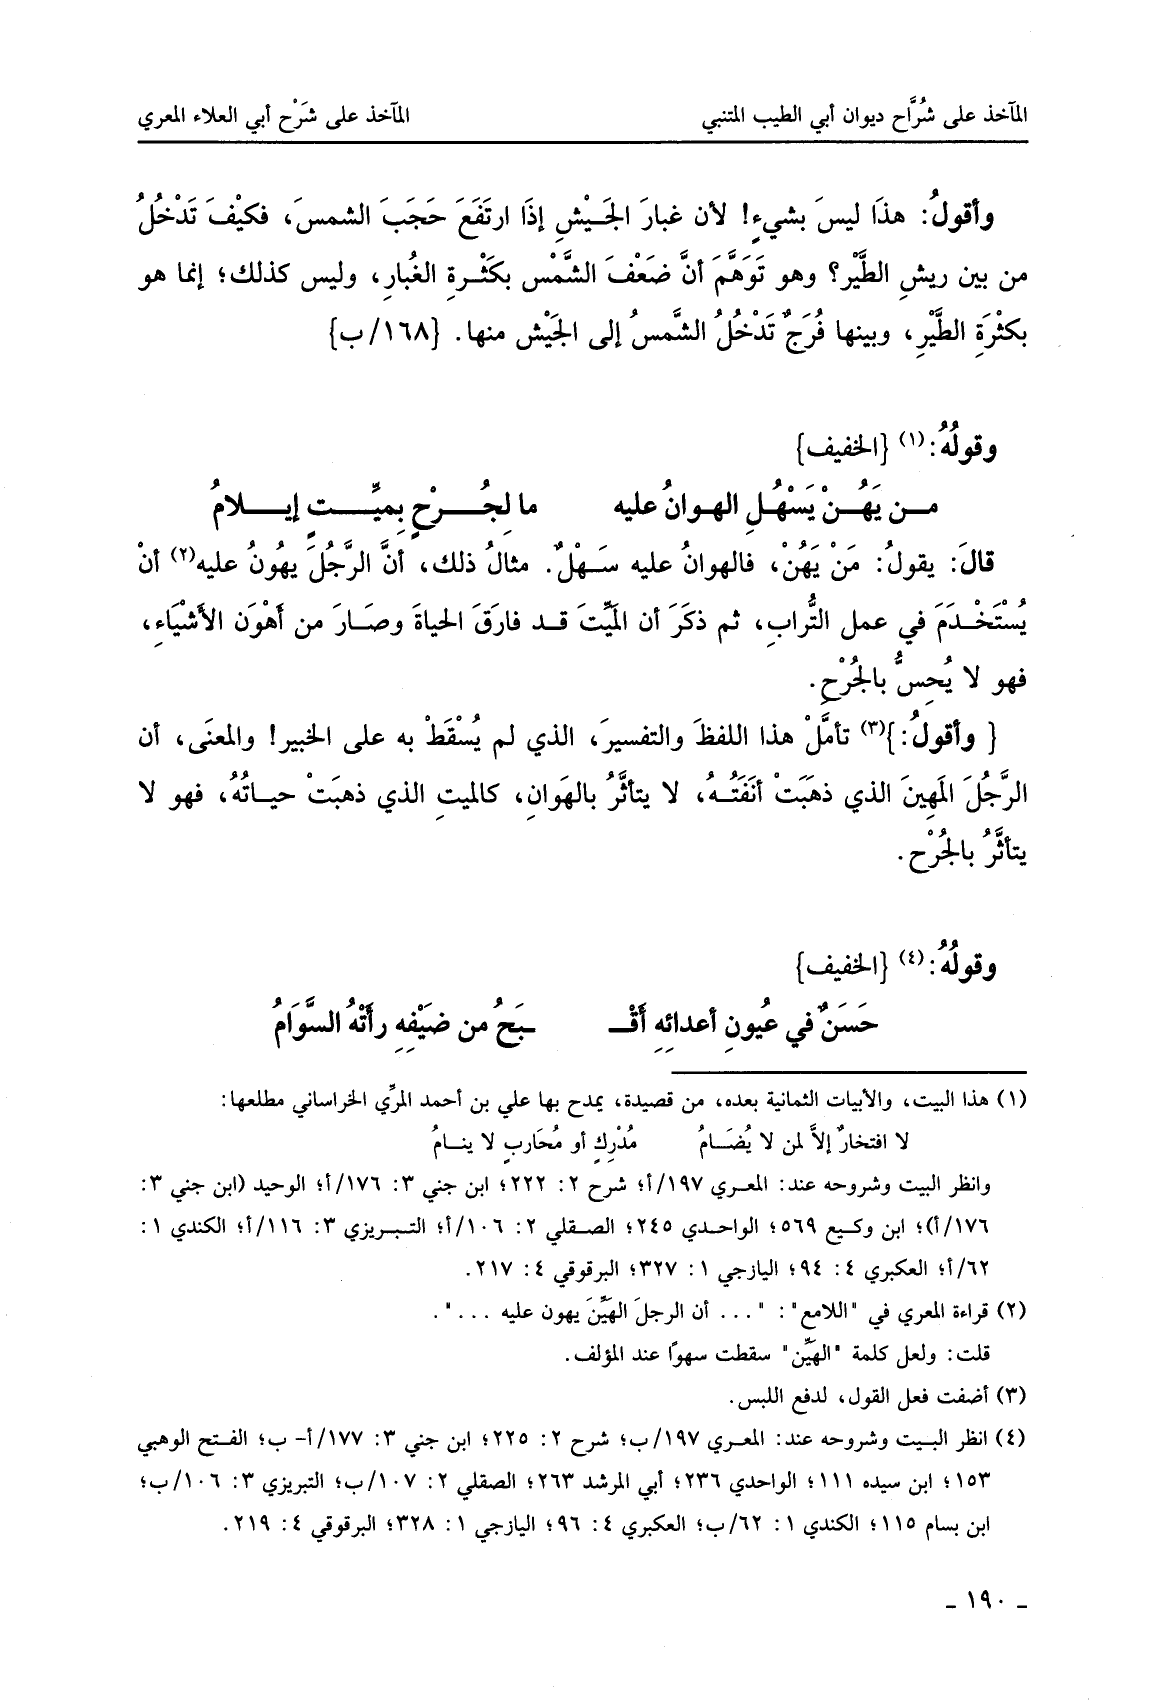 المآخذ على شُرَّاح ديوان أبي الطيب المتنبي المآخذ على شَرْح أبي العلاء المعري
وأقولُ: هذَا ليسَ بشيءٍ! لأن غبارَ الجَيْشِ إذَا ارتَفَعَ حَجَبَ الشمسَ، فكيْفَ تَدْخُلُ
من بين ريشِ الطَّيْر؟ وهو تَوَهَّمَ أنَّ ضَعْفَ الشَّمْس بكَثْرةِ الغُبارِ، وليس كذلك؛ إنما هو
بكثْرَةِ الطَّيْرِ، وبينها فُرَجٌ تَدْخُلُ الشَّمسُ إلى الجَيْش منها. {١٦٨/ب}
وقولُهُ:(١) {الخفيف}
مـن يَهُـنْ يَسْهُلِ الهـوانُ عليه ما لِجُـرْحٍ بِميِّـتٍ إيـلامُ
قالَ: يقولُ: مَنْ يَهُنْ، فالهوانُ عليه سَـهْلٌ. مثالُ ذلك، أنَّ الرَّجُلَ يهُونُ عليه(٢) أنْ
يُسْتَخْـدَمَ في عمل التُّرابِ، ثم ذكَرَ أن المَيِّتَ قـد فارَقَ الحياةَ وصَـارَ من أَهْوَن الأَشْيَاءِ،
فهو لا يُحِسُّ بالجُرْحِ.
{ وأقولُ:}(٣) تأمَّلْ هذا اللفظَ والتفسيرَ، الذي لم يُسْقَطْ به على الخبير! والمعنَى، أن
الرَّجُلَ المَهِينَ الذي ذهَبَتْ أنَفَتُـهُ، لا يتأثَّرُ بالهَوانِ، كالميتِ الذي ذهبَتْ حيـاتُهُ، فهو لا
يتأثَّرُ بالجُرْح.
وقولُهُ:(٤) {الخفيف}
حَسَنٌ في عيُونِ أعدائِهِ أَقْـ ـبَحُ من ضيْفِهِ رأتْهُ السَّوَامُ
(١) هذا البيت، والأبيات الثمانية بعده، من قصيدة، يمدح بها علي بن أحمد المرِّي الخراساني مطلعها:
لا افتخارٌ إلاَّ لمن لا يُضَـامُ مُدْرِكٍ أو مُحَاربٍ لا ينـامُ
وانظر البيت وشروحه عند: المعـري ١٩٧/أ؛ شرح ٢: ٢٢٢؛ ابن جني ٣: ١٧٦/أ؛ الوحيد (ابن جني ٣:
١٧٦/أ)؛ ابن وكـيع ٥٦٩؛ الواحـدي ٢٤٥؛ الصـقلي ٢: ١٠٦/أ؛ التـبـريزي ٣: ١١٦/أ؛ الكندي ١:
٦٢/أ؛ العكبري ٤: ٩٤؛ اليازجي ١: ٣٢٧؛ البرقوقي ٤: ٢١٧.
(٢) قراءة المعري في "اللامع": "... أن الرجلَ الهَيِّنَ يهون عليه ...".
قلت: ولعل كلمة "الهَيِّن" سقطت سهوًا عند المؤلف.
(٣) أضفت فعل القول، لدفع اللبس.
(٤) انظر البـيت وشروحه عند: المعـري ١٩٧/ب؛ شرح ٢: ٢٢٥؛ ابن جني ٣: ١٧٧/أ- ب؛ الفـتح الوهبي
١٥٣؛ ابن سيده ١١١؛ الواحدي ٢٣٦؛ أبي المرشد ٢٦٣؛ الصقلي ٢: ١٠٧/ب؛ التبريزي ٣: ١٠٦/ب؛
ابن بسام ١١٥؛ الكندي ١: ٦٢/ب؛ العكبري ٤: ٩٦؛ اليازجي ١: ٣٢٨؛ البرقوقي ٤: ٢١٩.
- ١٩٠ -